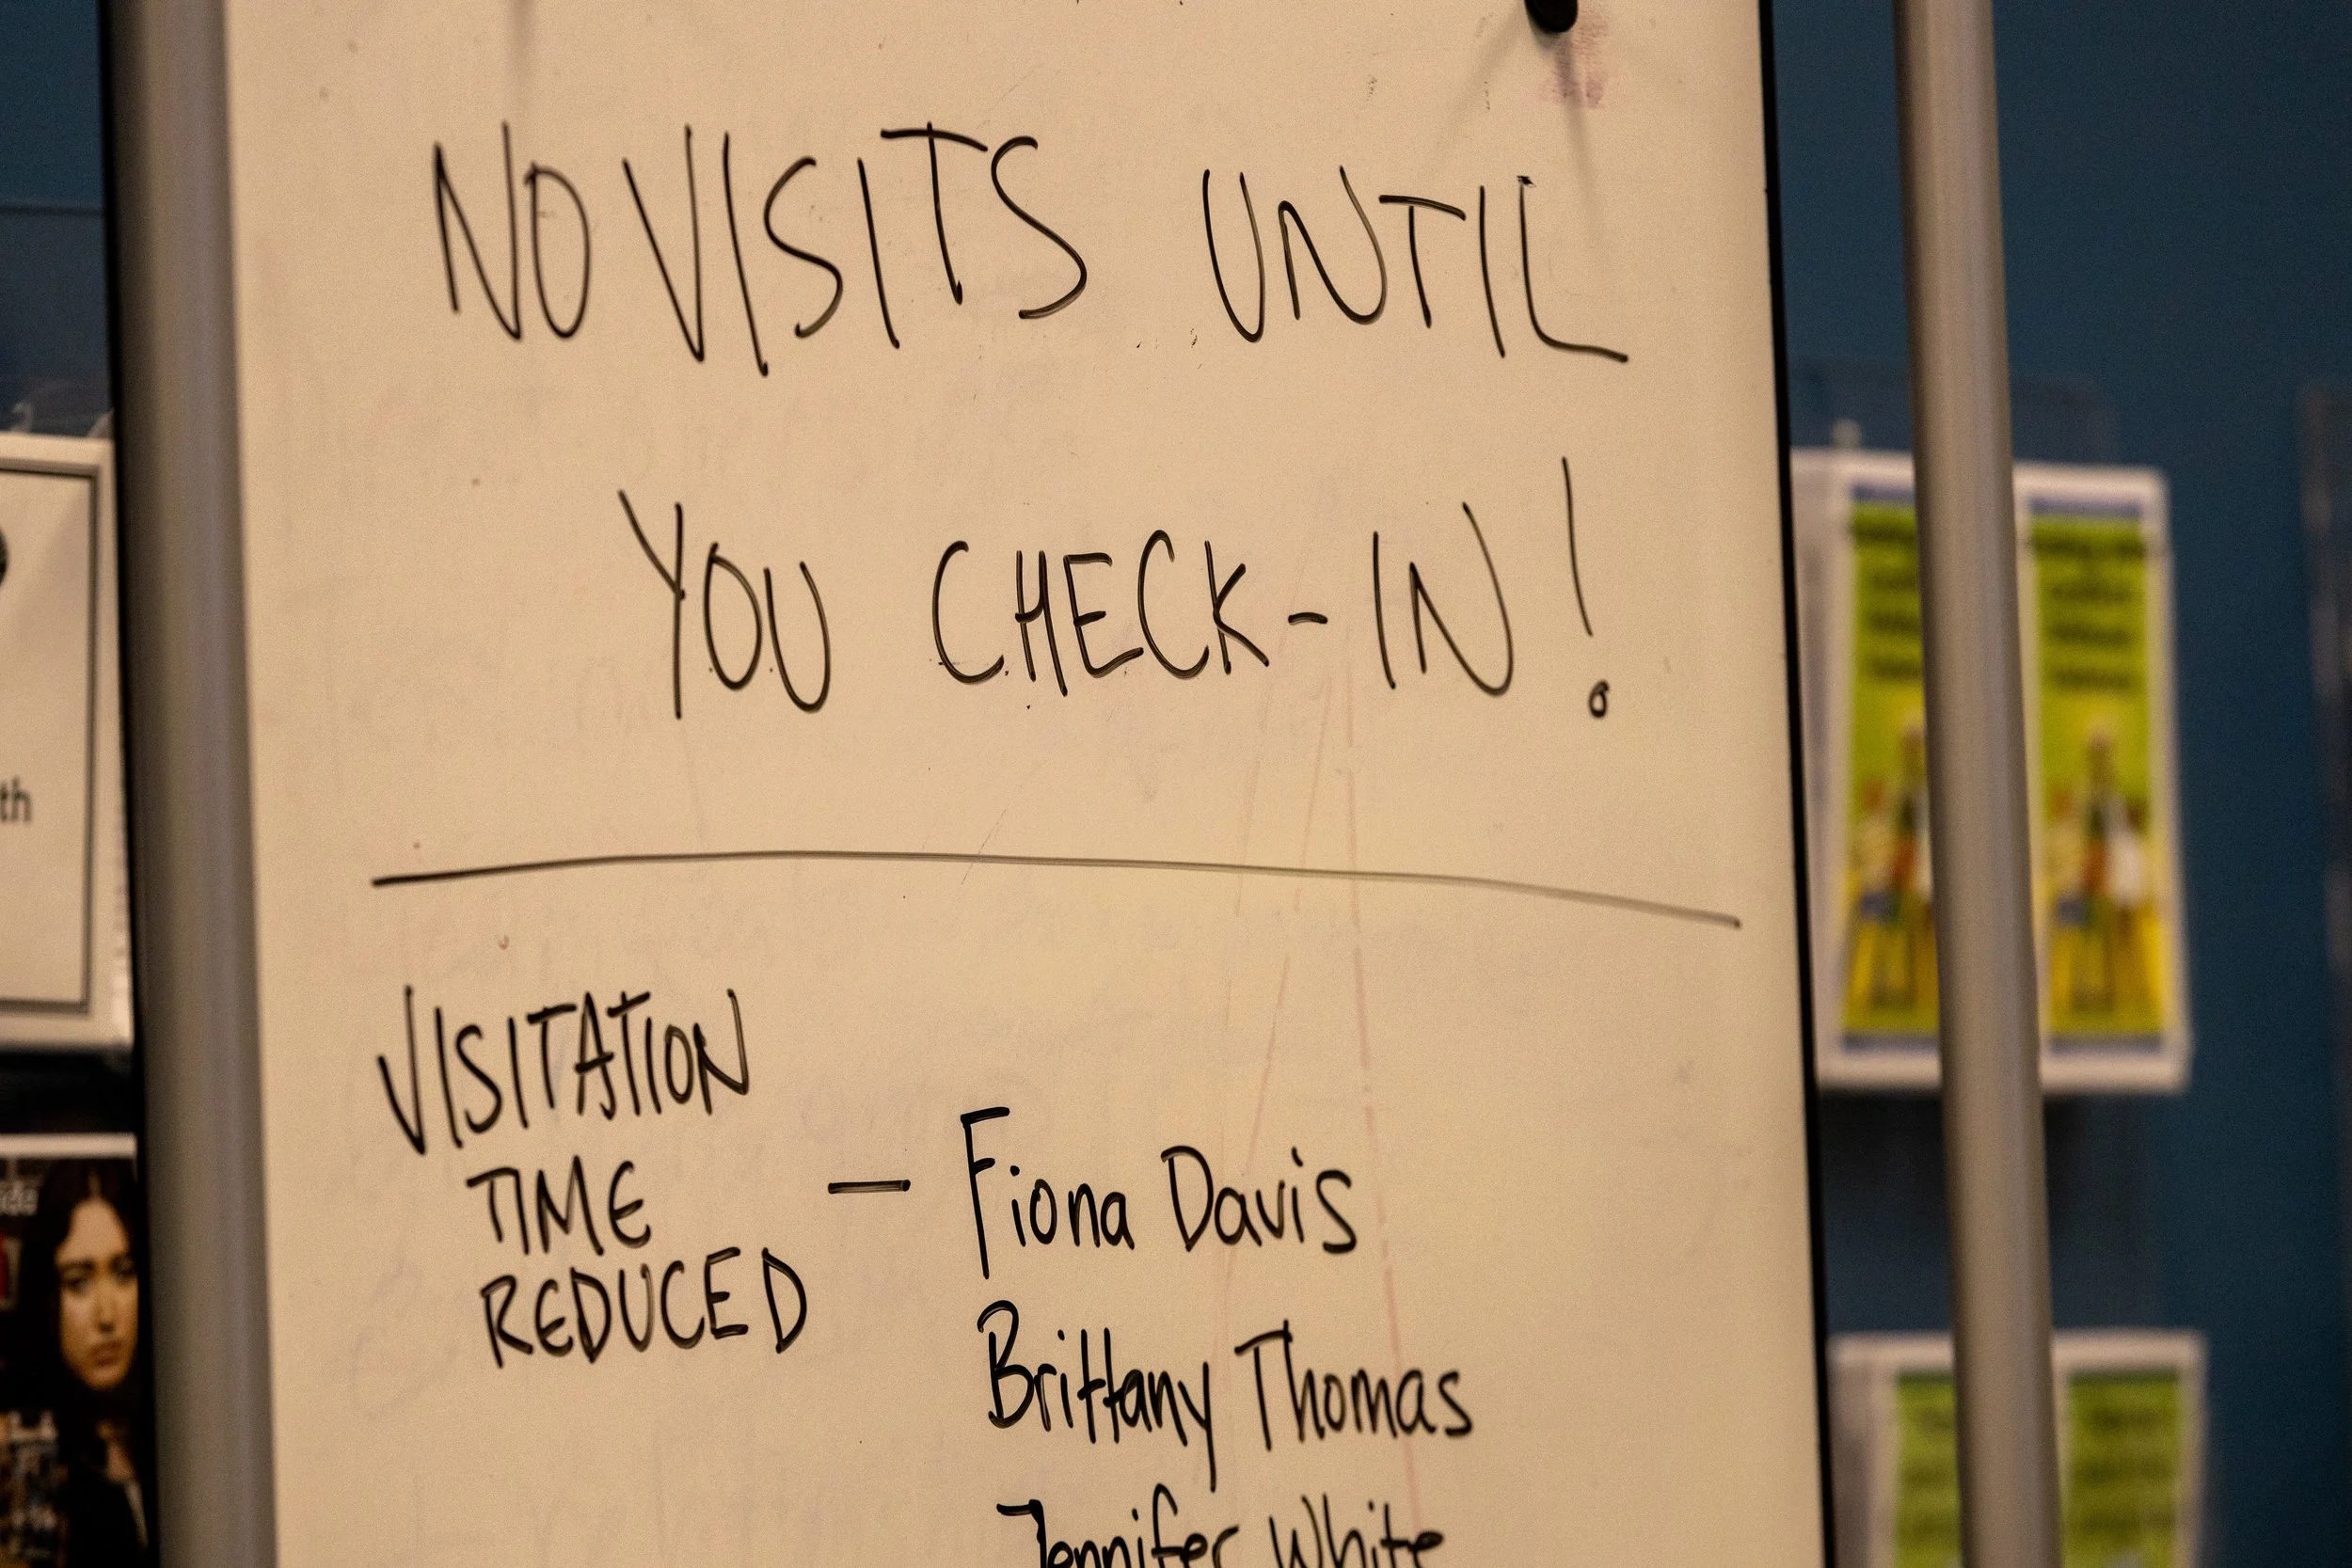 NO VISITS UNTIL
YOU CHECK-IN!
VISITATION
TIME
REDUCED
— Fiona Davis
Brittany Thomas
Jennifer White
th